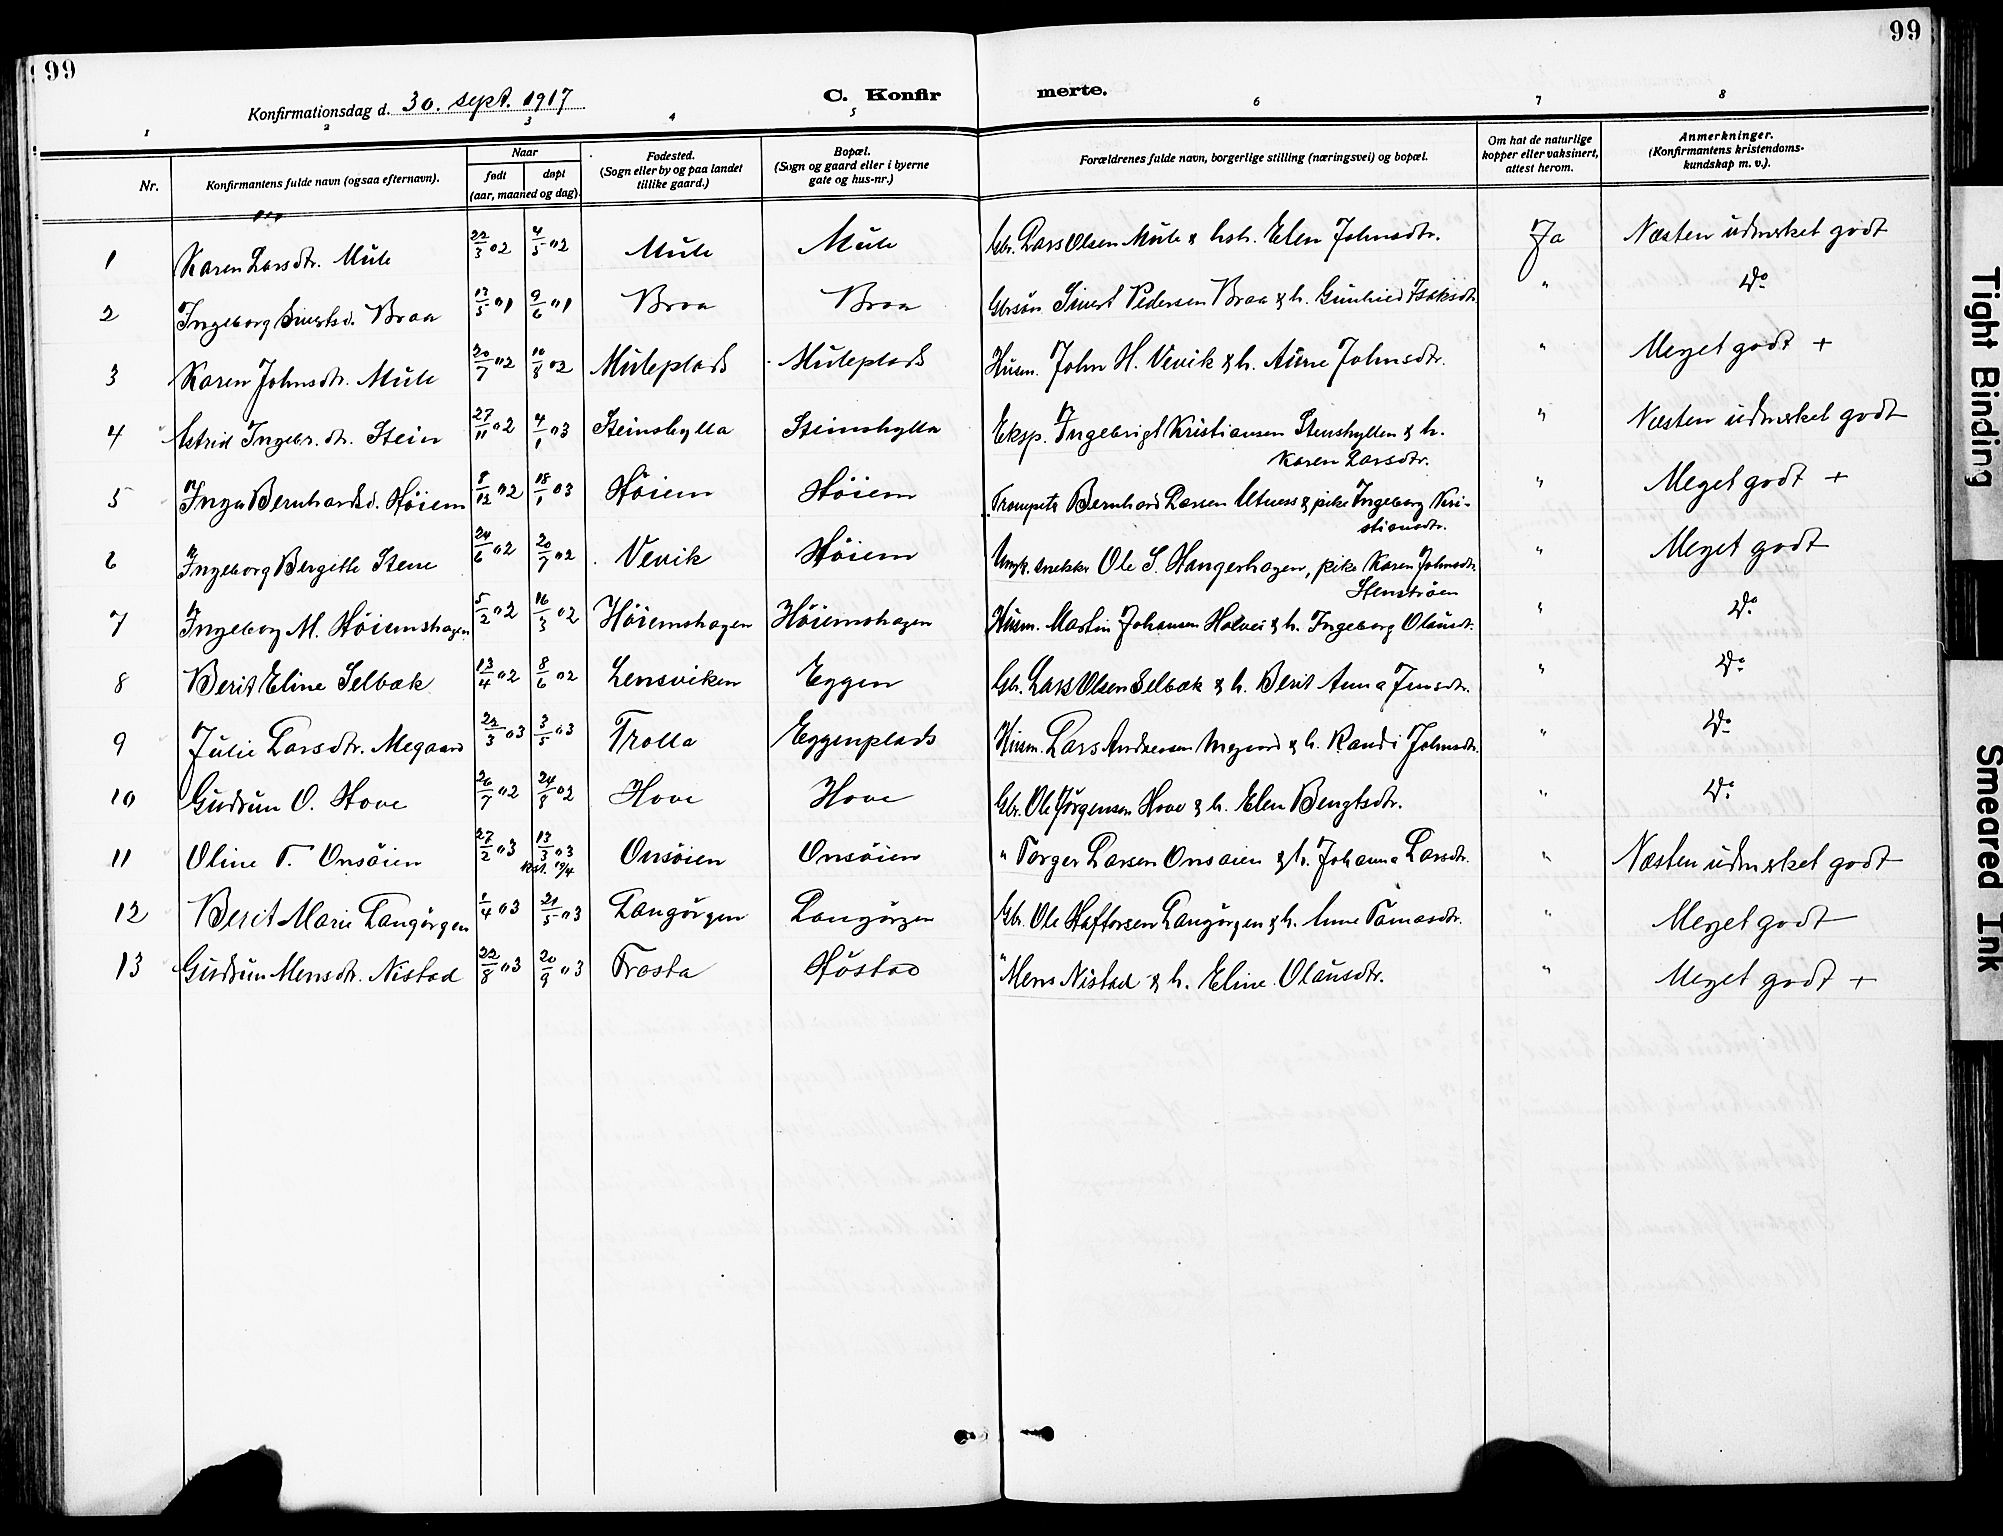 99
99
Konfirmationsdag d. 30. sept. 1917
C. Konfirmerte.
1 2 3 4 5 6 7 8
Nr.
Konfirmantens fulde navn (ogsaa efternavn).
Naar
født
døpt
(aar, maaned og dag).
Fødested.
(Sogn eller by og paa landet
tillike gaard.)
Bopæl.
(Sogn og gaard eller i byerne
gate og hus-nr.)
Forældrenes fulde navn, borgerlige stilling (næringsvei) og bopæl.
Om hat de naturlige
kopper eller vaksinert,
attest herom.
Anmerkninger.
(Konfirmantens kristendoms-
kundskap m. v.).
1 Karen Larsdtr. Mule 22/3 02 4/5 02 Mule Mule Gbr. Lars Olsen Mule & hstr. Elen Johnsdtr. Ja Næsten udmerket godt
2 Ingeborg Sivertsd. Braa 13/5 01 9/6 01 Braa Braa Gbrsøn Sivert Pedersen Braa & h. Gunhild Isaksdtr. " Do
3 Karen Johnsdtr. Mule 20/7 02 10/8 02 Muleplads Muleplads Husm. John H. Vevik & h. Anne Johnsdtr. " Meget godt +
4 Astrid Ingebr.dtr. Stein 27/11 02 4/1 03 Steinshylla Steinshylla Eksp. Ingebrigt Kristiansen Stenshyllen & h. " Næsten udmerket godt
Karen Larsdtr.
5 Inga Bernhardsd. Høiem 8/12 02 18/1 03 Høiem Høiem Trompetr Bernhard Larsen Utness & pike Ingeborg Kri- " Meget godt +
stiansdtr.
6 Ingeborg Bergitte Stene 24/6 02 20/7 02 Vevik Høiem Ungk. snekker Ole S. Hangerhagen, pike Karen Johnsdtr. " Meget godt
Stenstrøen
7 Ingeborg M. Høiemshagen 5/2 02 16/3 02 Høiemshagen Høiemshagen Husm. Martin Johansen Halvei & h. Ingeborg Olausdtr. " Do
8 Berit Eline Selbæk 13/4 02 8/6 02 Lensviken Eggen Gbr. Lars Olsen Selbæk & h. Berit Anna Jensdtr. " Do
9 Julie Larsdtr. Megaard 22/3 03 3/5 03 Trolla Eggenplads Husm. Lars Andreassen Megaard & h. Randi Johnsdtr. " Do
10 Gudrun O. Hove 26/7 02 24/8 02 Hove Hove Gbr. Ole Jørgensen Hove & h. Elen Bengtsdtr. " Do
11 Oline T. Onsøien 27/2 03 13/3 03 Onsøien Onsøien " Torger Larsen Onsøien & h. Johanna Larsdtr. " Næsten udmerket godt
12 Berit Marie Langørgen 1/4 03 21/5 03 Langørgen Langørgen Gbr. Ole Haftorsen Langørgen & h. Anne Tomasdtr. " Meget godt
13 Gudrun Monsdtr. Nistad 22/8 03 20/9 03 Frosta Høstad " Mons Nistad & h. Eline Olausdtr. " Meget godt +
Tight Binding
Smeared Ink